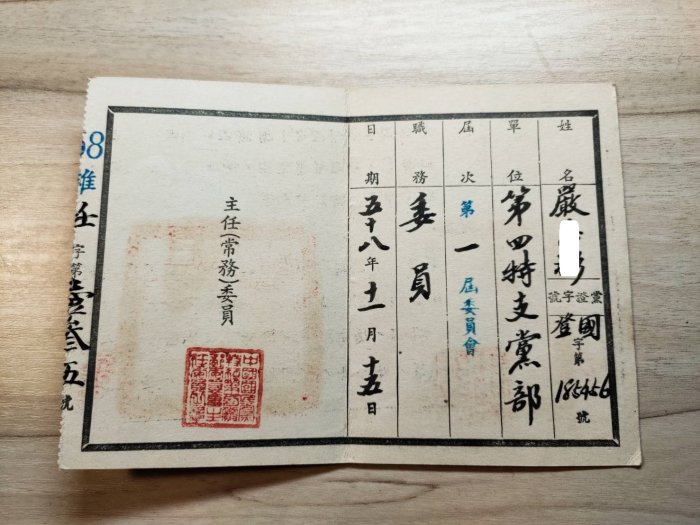 姓名 嚴
黨證字號 國登字第185456號
單位 第四特支黨部
屆次 第一屆委員會
職務 委員
日期 五十八年十一月十五日
主任(常務)委員
58
雄任字第壹叁五號